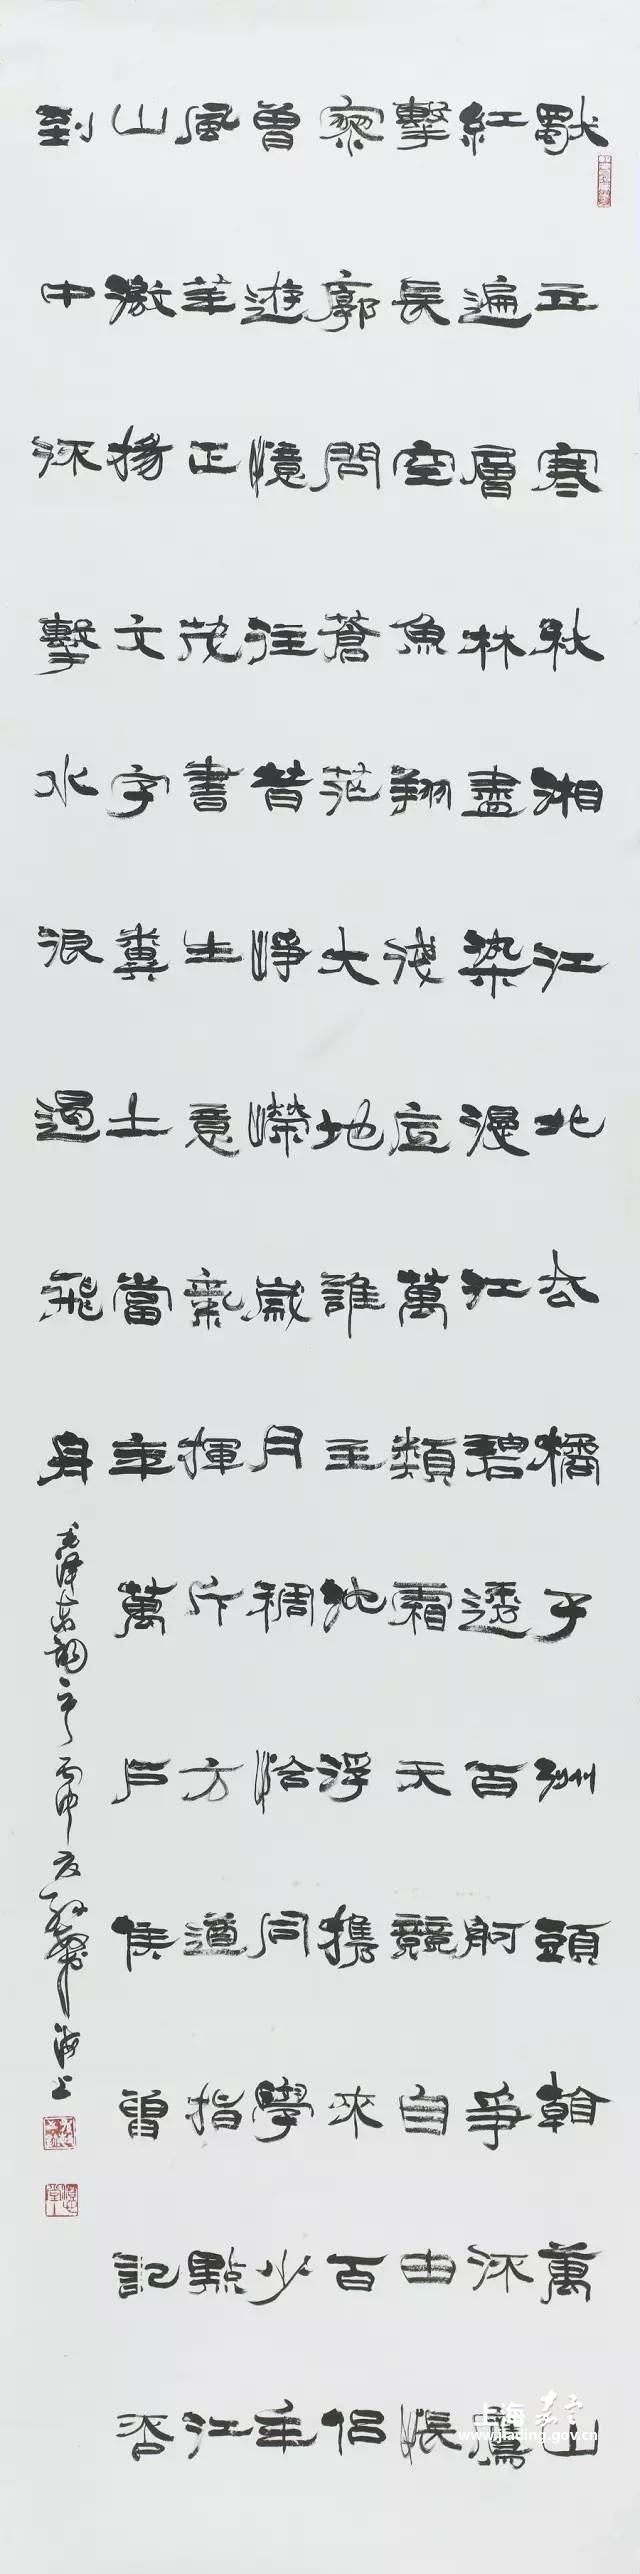 獨立寒秋湘江北去橘子洲頭看萬山
紅遍層林盡染漫江碧透百舸爭流鷹
擊長空魚翔淺底萬類霜天競自由悵
寥廓問蒼茫大地誰主沉浮攜來百侶
曾遊憶往昔崢嶸歲月稠恰同學少年
風華正茂書生意氣揮斥方遒指點江
山激揚文字糞土當年萬戶侯曾記否
到中流擊水浪遏飛舟
毛澤東詞 丙申夏 海上
上海嘉定
www.jiading.gov.cn